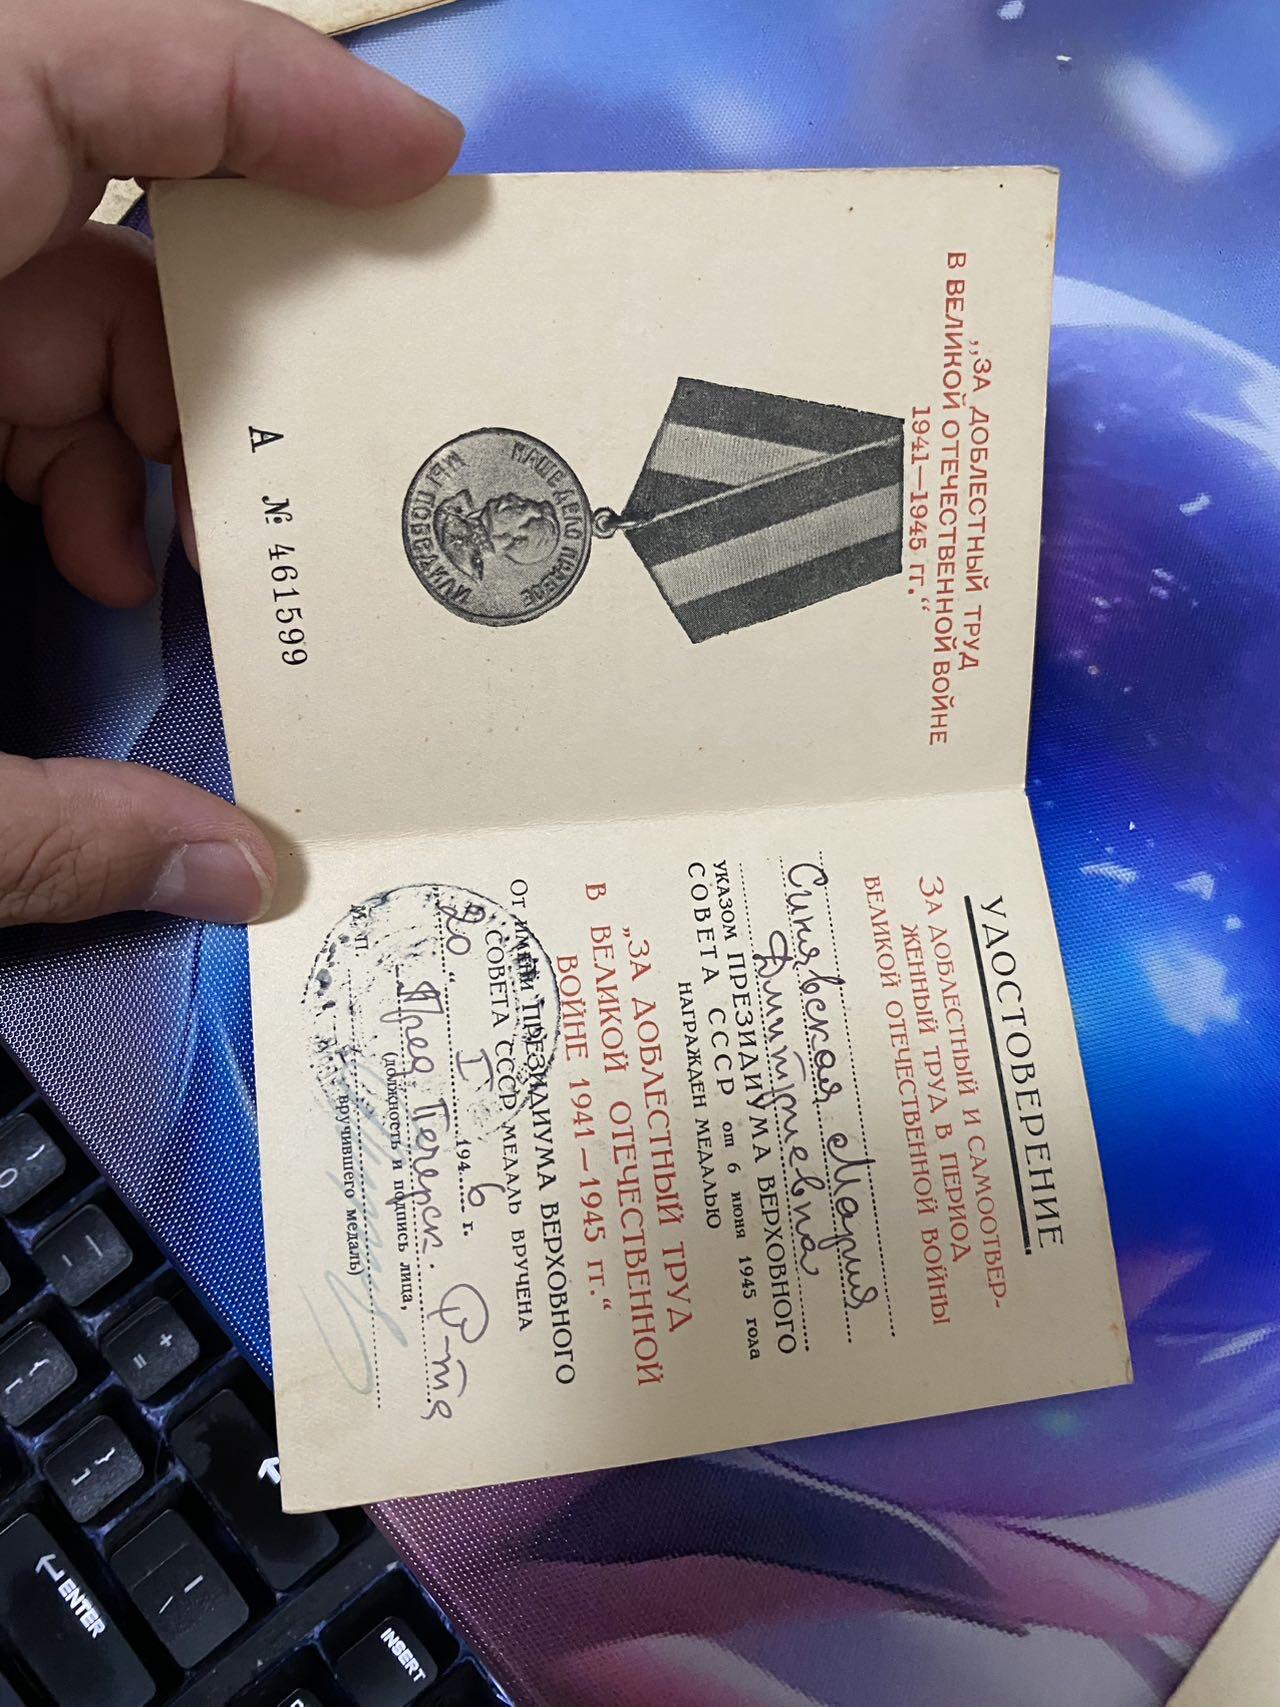 „ЗА ДОБЛЕСТНЫЙ ТРУД
В ВЕЛИКОЙ ОТЕЧЕСТВЕННОЙ ВОЙНЕ
1941—1945 гг.“
НАШЕ ДЕЛО ПРАВОЕ
МЫ ПОБЕДИЛИ
А № 461599
УДОСТОВЕРЕНИЕ
ЗА ДОБЛЕСТНЫЙ И САМООТВЕР-
ЖЕННЫЙ ТРУД В ПЕРИОД
ВЕЛИКОЙ ОТЕЧЕСТВЕННОЙ ВОЙНЫ
Синявская Мария
Дмитриевна
УКАЗОМ ПРЕЗИДИУМА ВЕРХОВНОГО
СОВЕТА СССР от 6 июня 1945 года
НАГРАЖДЕН МЕДАЛЬЮ
„ЗА ДОБЛЕСТНЫЙ ТРУД
В ВЕЛИКОЙ ОТЕЧЕСТВЕННОЙ
ВОЙНЕ 1941—1945 гг.“
ОТ ИМЕНИ ПРЕЗИДИУМА ВЕРХОВНОГО
СОВЕТА СССР МЕДАЛЬ ВРУЧЕНА
„20“ I 1946 г.
Пред Печерск.
(должность и подпись лица,
М. П.
вручившего медаль)
ENTER
INSERT